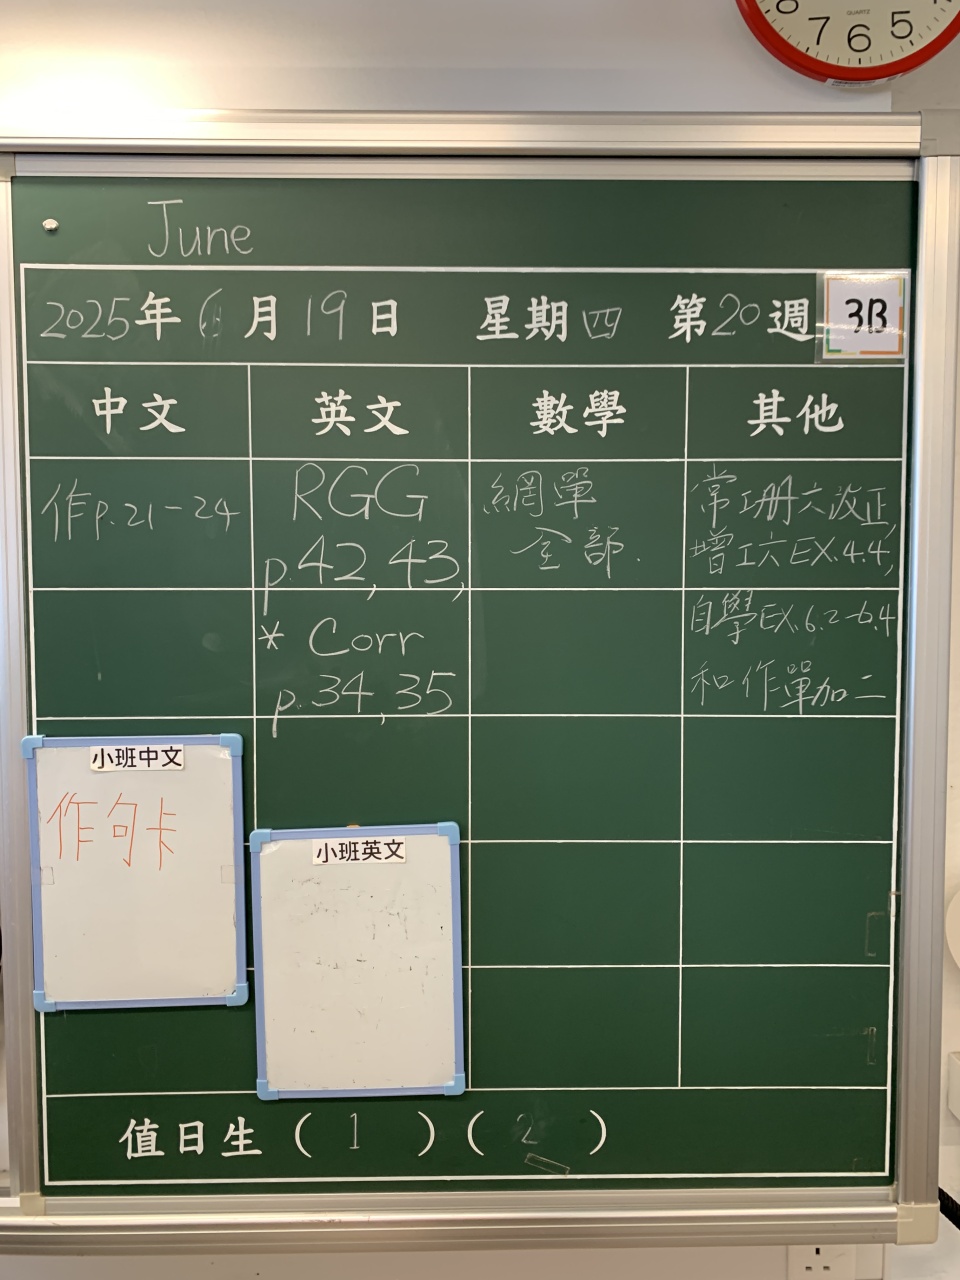 8 7 6 5
QUARTZ
June
2025年6月19日 星期四 第20週 3B
中文 英文 數學 其他
作p.21-24
RGG
p.42,43,
* Corr
p.34,35
網單
全部.
常工冊六改正,
增工六EX.4.4,
自學EX.6.2-6.4
和作單加二
小班中文
作句卡
小班英文
值日生(1)(2)